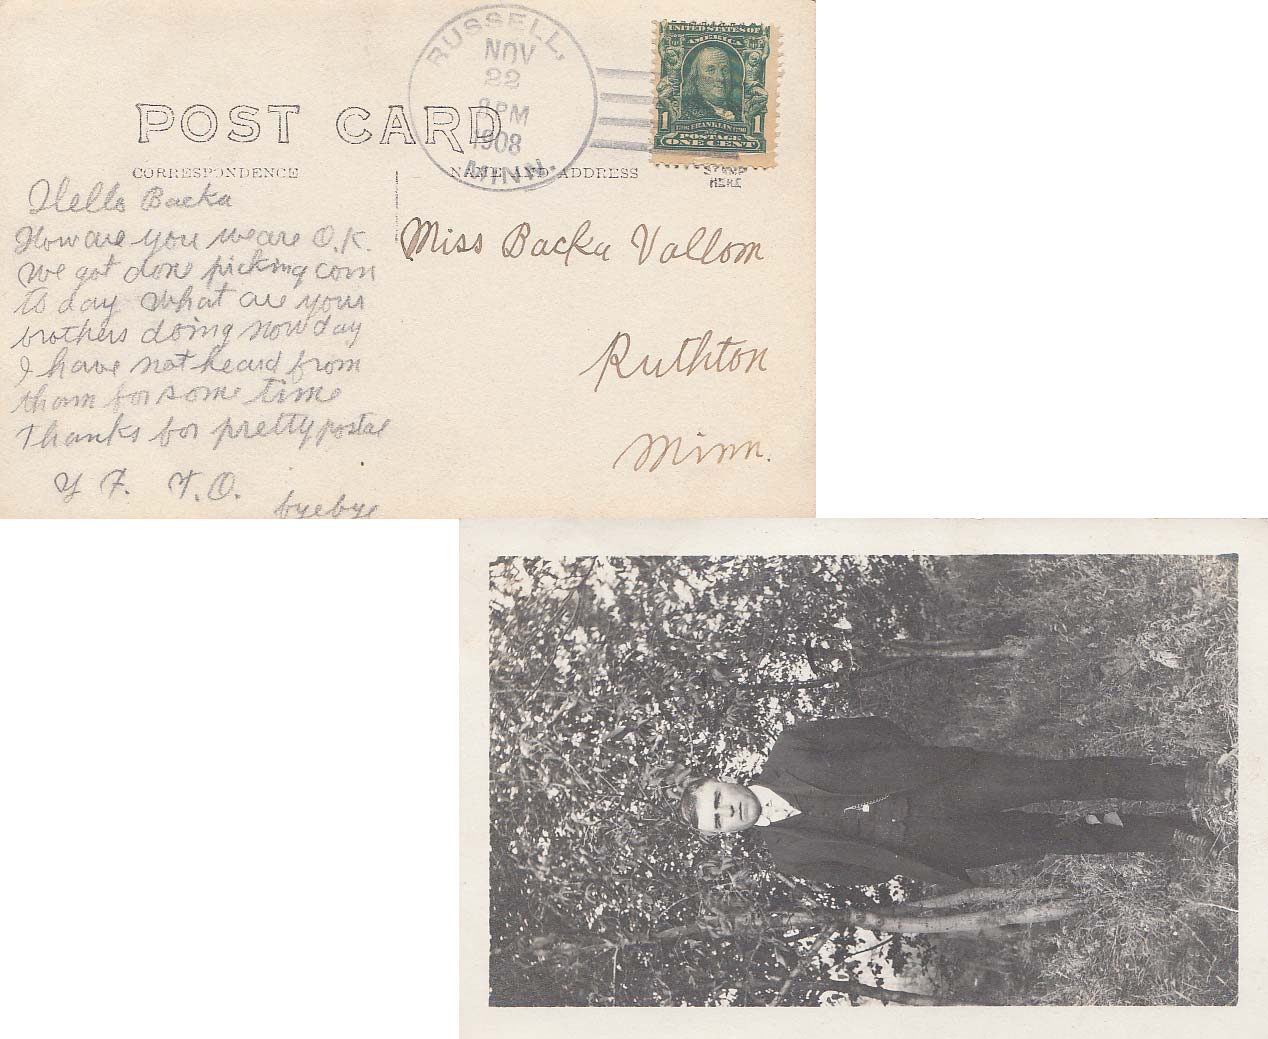 RUSSELL,
NOV
22
8PM
1908
MINN.
UNITED STATES OF
AMERICA
1 1706 FRANKLIN 1790 1
POSTAGE
ONE CENT
POST CARD
CORRESPONDENCE
NAME AND ADDRESS
STAMP
HERE
Hello Backa
How are you we are O.K.
We got done picking corn
to day what are your
brothers doing now day
I have not heard from
tham for some time
Thanks for pretty postal
Y F. T.O.
byebye
Miss Backa Vallom
Ruthton
Minn.